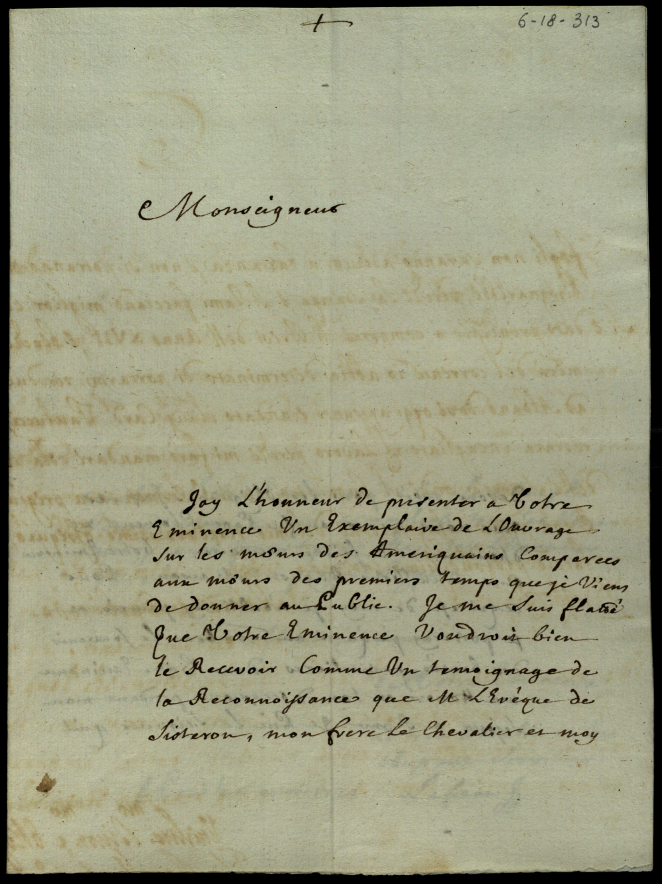 6-18-313
Monseigneur
Jay L'honneur de presenter a Votre
Eminence Un Exemplaire de L'Ouvrage
sur les mœurs des Ameriquains Comparees
aux mœurs des premiers temps que je Viens
de donner au Public. Je me suis flatté
que Votre Eminence Voudroit bien
le Recevoir Comme Un temoignage de
la Reconnoissance que M L'Evêque de
Sisteron, mon frere Le Chevalier et moy